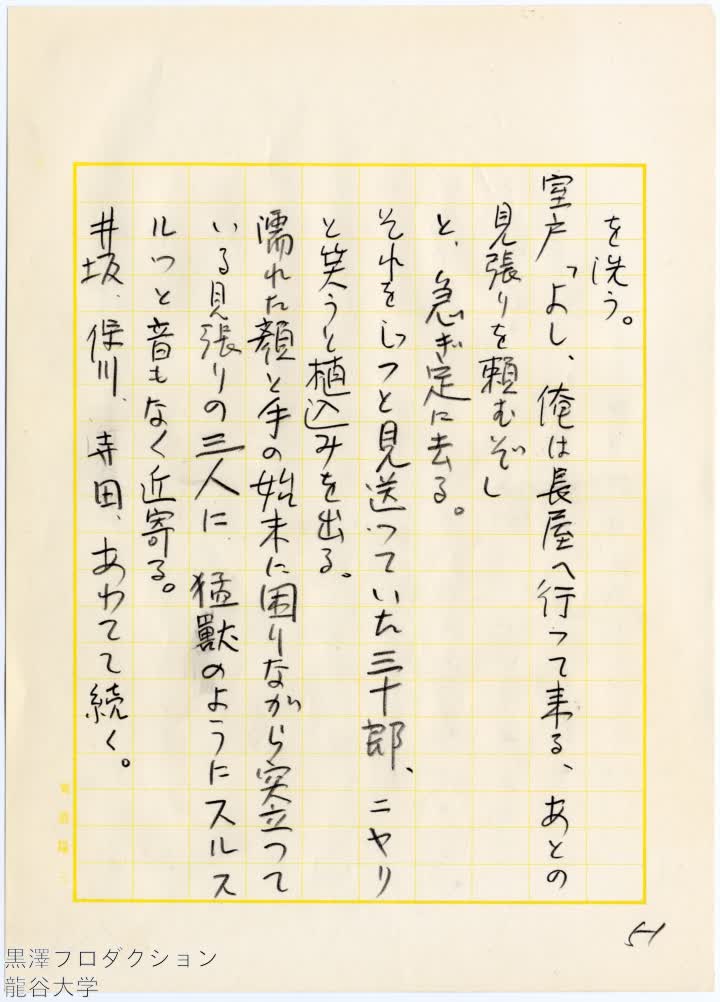 を洗う。
室戸「よし、俺は長屋へ行って来る、あとの
見張りを頼むぞ」
と、急ぎ足に去る。
それをじっと見送っていた三十郎、ニヤリ
と笑うと植込みを出る。
濡れた顔と手の始末に困りながら突立って
いる見張りの三人に 猛獣のようにスルス
ルっと音もなく近寄る。
井坂、保川、寺田、あわてて続く。
51
黒澤プロダクション
龍谷大学